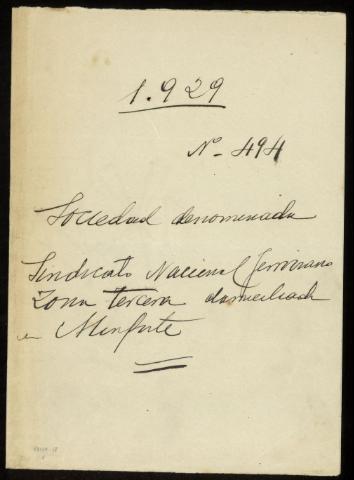 1.929
Nº - 494
Sociedad denominada
Sindicato Nacional Ferroviario
Zona tercera domiciliada
en Monforte